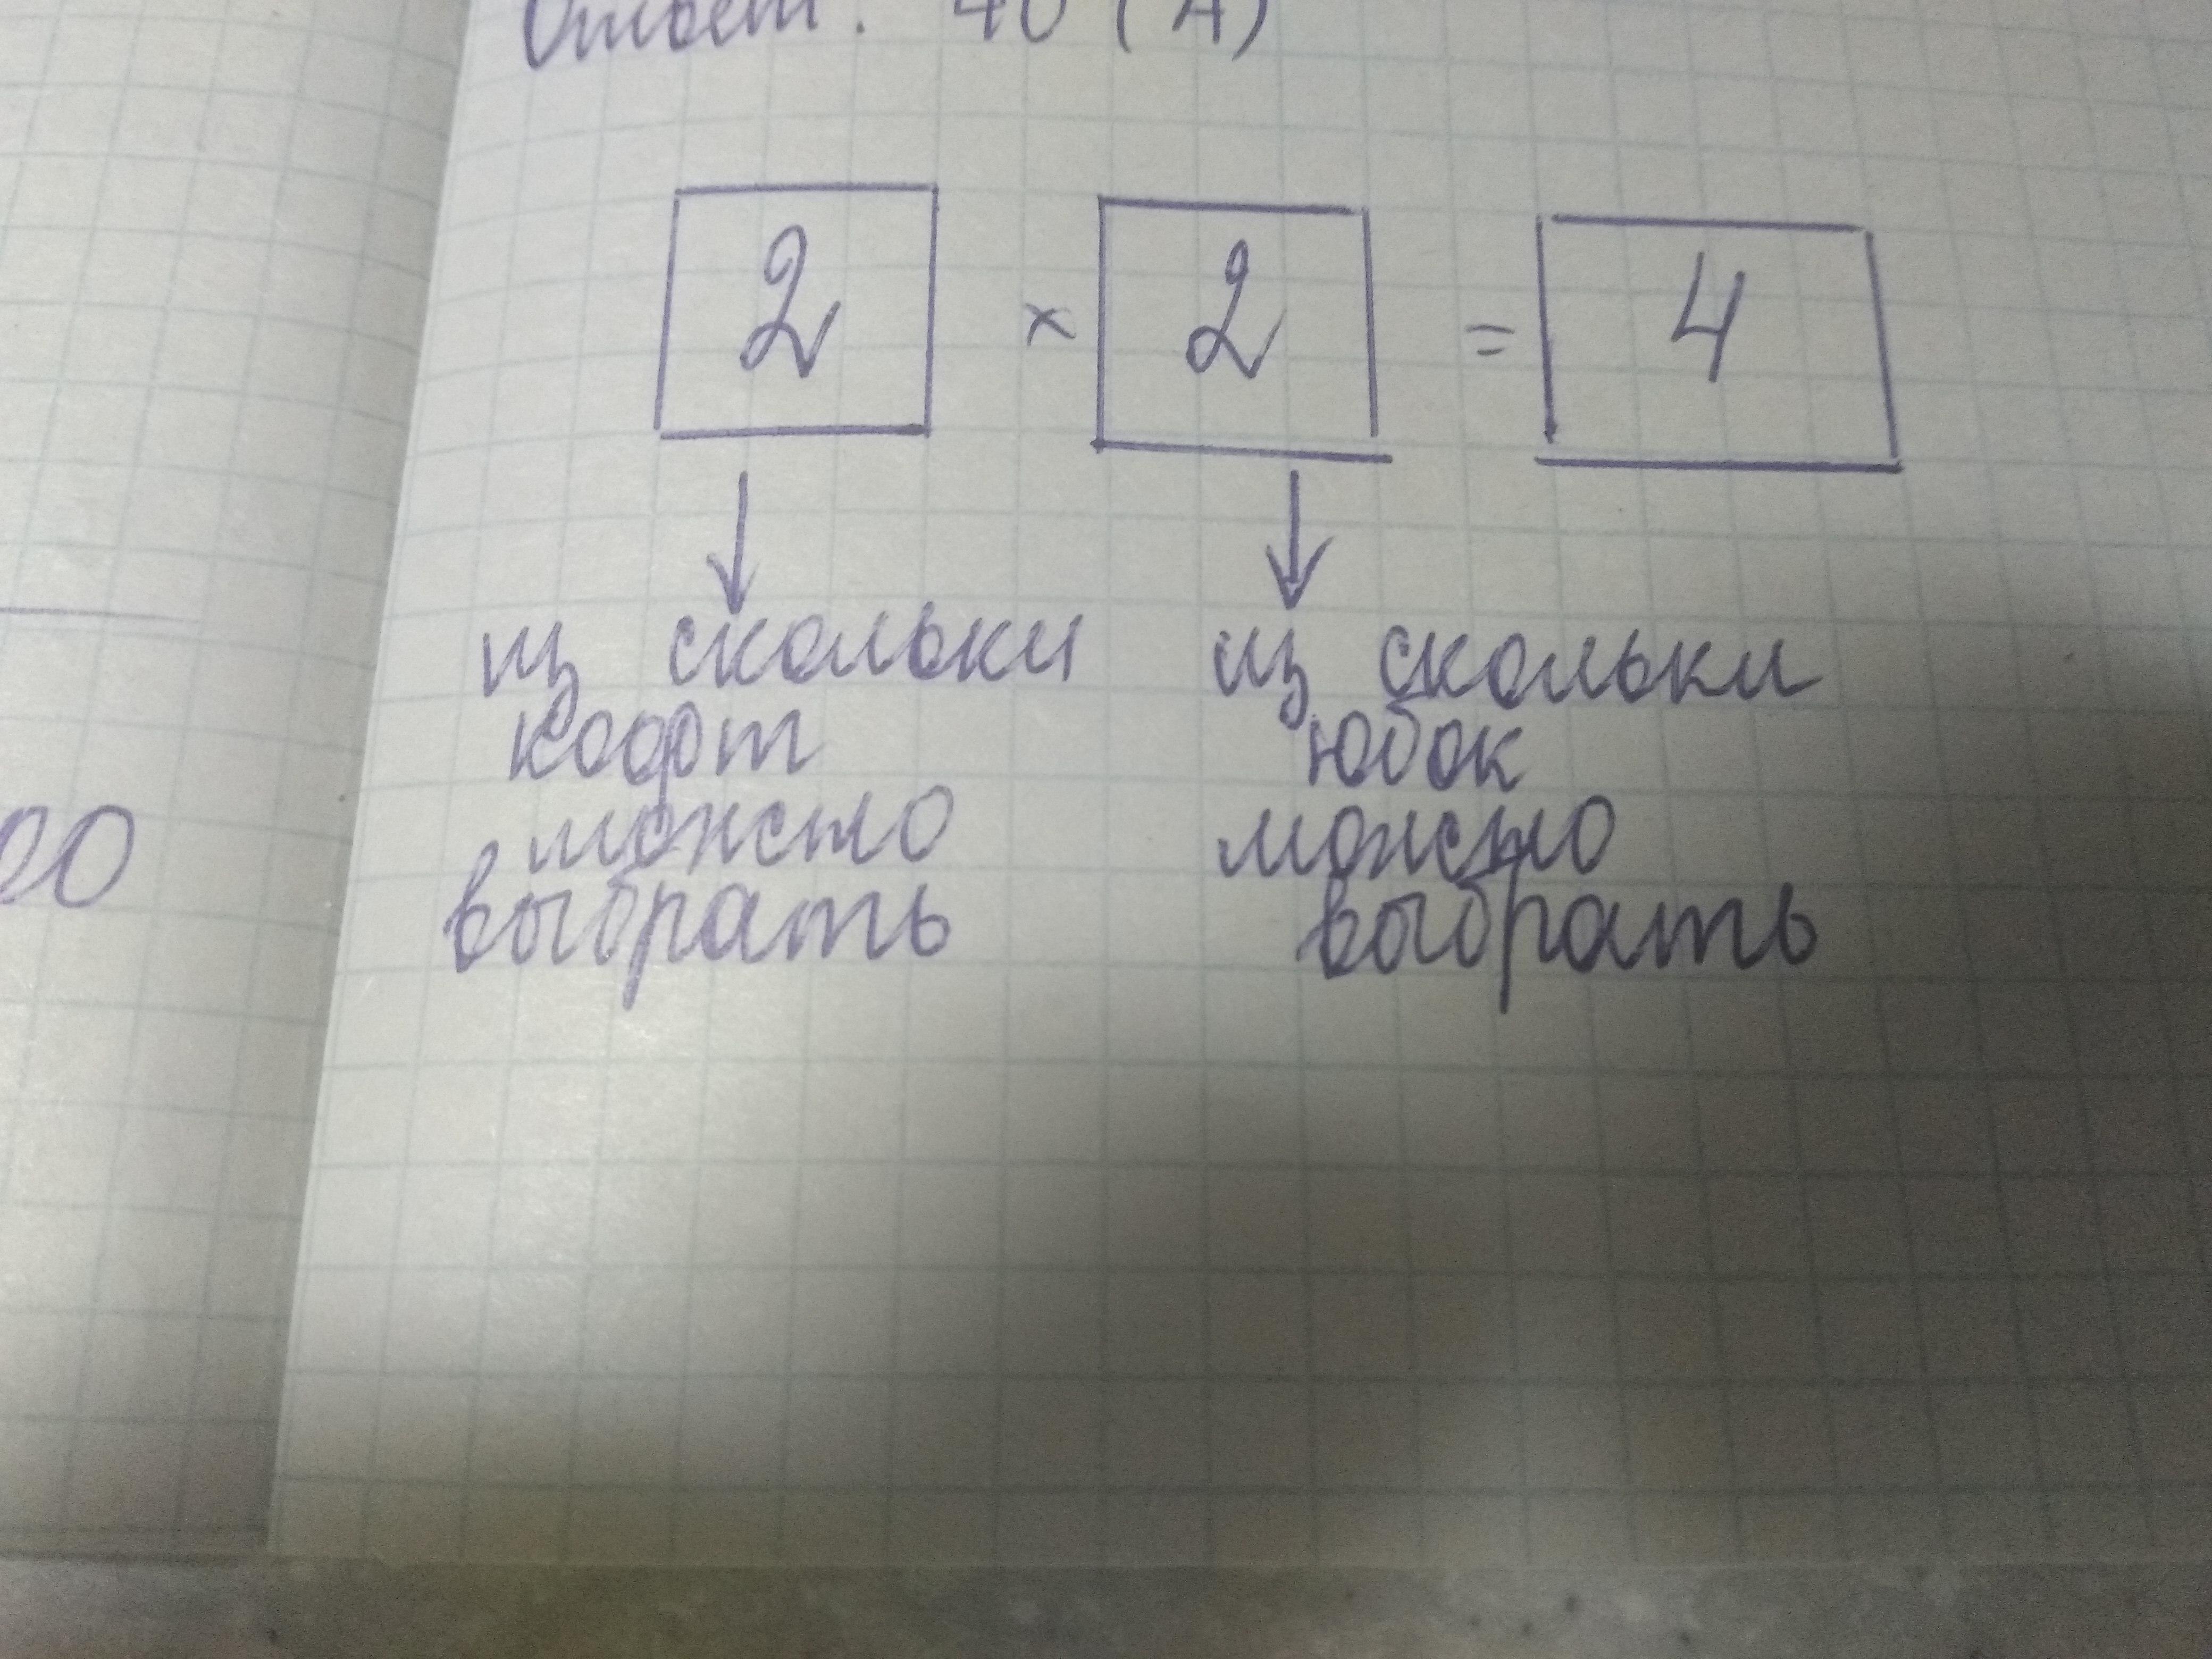 Ответ: 40 (А)
2 × 2 = 4
из скольки из скольки
кофт юбок
можно можно
выбрать выбрать
00